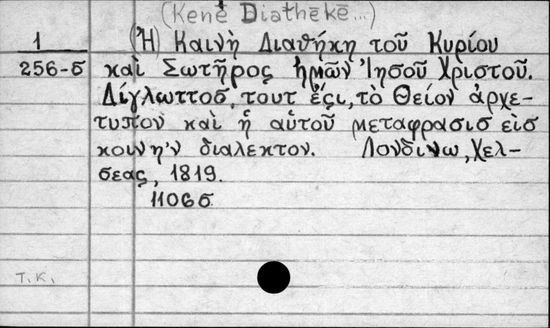 (Kenē Diathēkē...)
1 (Ἡ) Καινὴ Διαθήκη τοῦ Κυρίου
256-5 καὶ Σωτῆρος ἡμῶν Ἰησοῦ Χριστοῦ.
Δίγλωττοσ, τουτ ἔςι, τὸ Θείον ἀρχε-
τυπον καὶ ἡ αὐτοῦ μεταφρασισ εἰσ
κοινη'ν διαλεκτον. Λονδινω, Χελ-
σεας, 1819.
1106б
T.K.